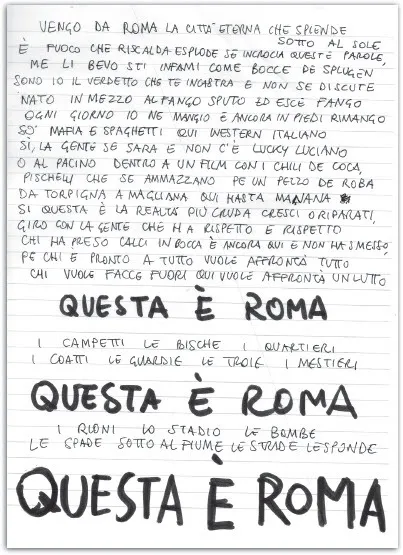 VENGO DA ROMA LA CITTÀ ETERNA CHE SPLENDE
SOTTO AL SOLE
È FUOCO CHE RISCALDA ESPLODE SE INCROCIA QUESTE PAROLE,
ME LI BEVO STI INFAMI COME BOCCE DE SPLUGEN
SONO IO IL VERDETTO CHE TE INCASTRA E NON SE DISCUTE
NATO IN MEZZO AL FANGO SPUTO ED ESCE FANGO
OGNI GIORNO IO NE MANGIO E ANCORA IN PIEDI RIMANGO
SO' MAFIA E SPAGHETTI QUI WESTERN ITALIANO
SÌ, LA GENTE SE SARA E NON C'È LUCKY LUCIANO
O AL PACINO DENTRO A UN FILM CON I CHILI DE COCA,
PISCHELLI CHE SE AMMAZZANO PE UN PEZZO DE ROBA
DA TORPIGNA A MAGLIANA QUI HASTA MANANA
SI QUESTA È LA REALTÀ PIÙ CRUDA CRESCI O RIPARATI,
GIRO CON LA GENTE CHE HA RISPETTO E RISPETTO
CHI HA PRESO CALCI IN BOCCA È ANCORA QUI E NON HA SMESSO,
PE CHI È PRONTO A TUTTO VUOLE AFFRONTÀ TUTTO
CHI VUOLE FACCE FUORI QUI VUOLE AFFRONTÀ UN LUTTO
QUESTA È ROMA
I CAMPETTI LE BISCHE I QUARTIERI
I COATTI LE GUARDIE LE TROIE I MESTIERI
QUESTA È ROMA
I RIONI LO STADIO LE BOMBE
LE SPADE SOTTO AL FIUME LE STRADE LE SPONDE
QUESTA È ROMA